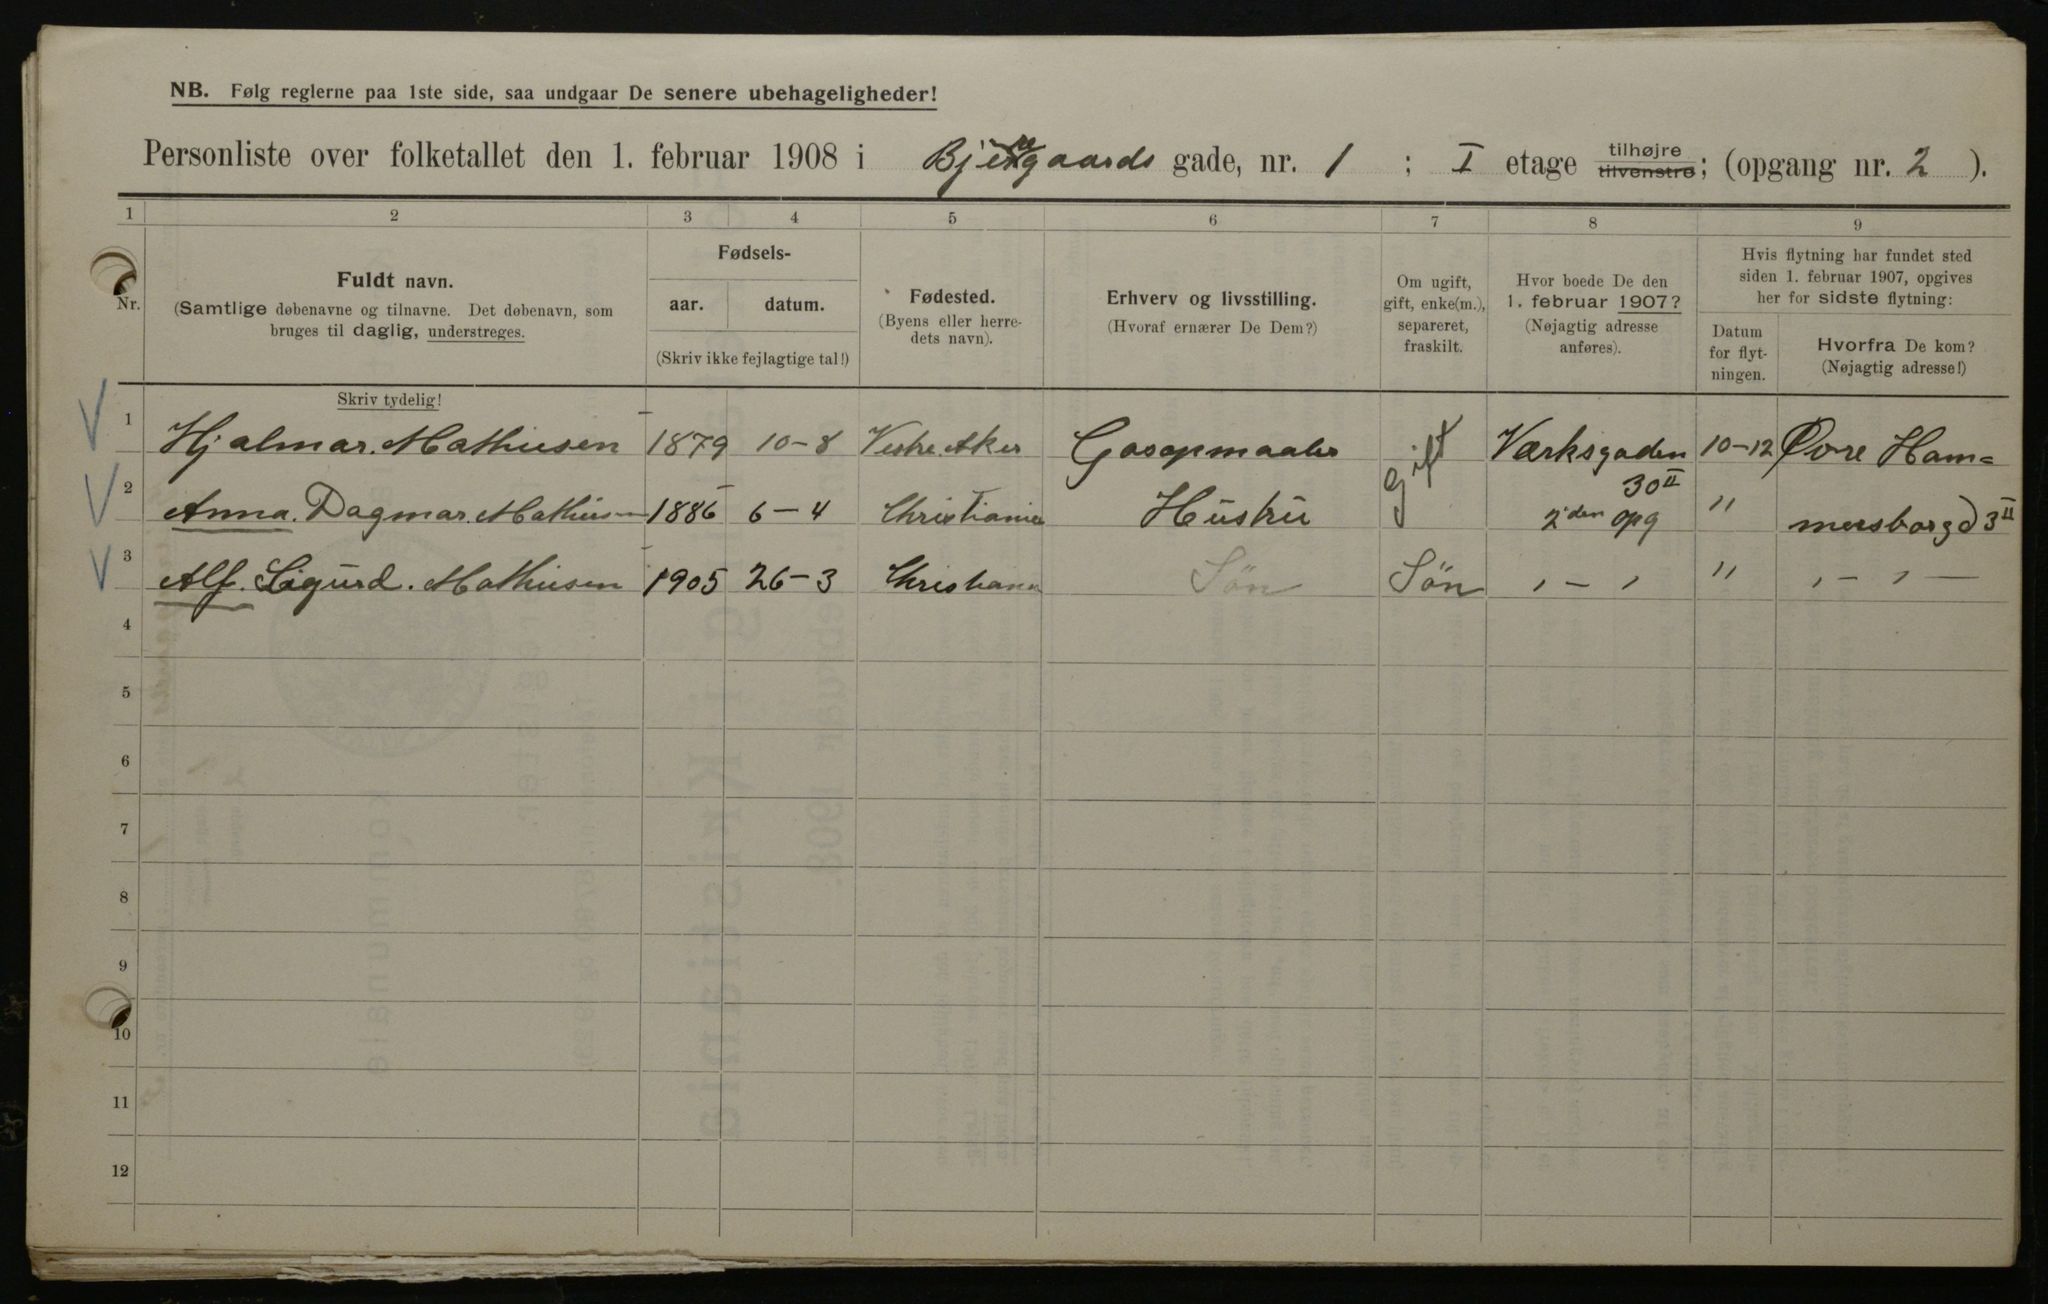 NB. Følg reglerne paa 1ste side, saa undgaar De senere ubehageligheder!
Personliste over folketallet den 1. februar 1908 i Bjerregaards gade, nr. 1 ; I etage tilhøjre tilvenstre; (opgang nr. 2 ).
1 2 3 4 5 6 7 8 9
Nr.
Fuldt navn.
(Samtlige døbenavne og tilnavne. Det døbenavn, som
bruges til daglig, understreges.
Skriv tydelig!
Fødsels-
aar. datum.
(Skriv ikke fejlagtige tal!)
Fødested.
(Byens eller herre-
dets navn).
Erhverv og livsstilling.
(Hvoraf ernærer De Dem?)
Om ugift,
gift, enke(m.),
separeret,
fraskilt.
Hvor boede De den
1. februar 1907?
(Nøjagtig adresse
anføres).
Hvis flytning har fundet sted
siden 1. februar 1907, opgives
her for sidste flytning:
Datum
for flyt-
ningen.
Hvorfra De kom?
(Nøjagtig adresse!)
1 Hjalmar. Mathiesen 1879 10-8 Vestre Aker Gasopmaaler Gift Værksgaden 10-12 Øvre Ham=
2 Anna. Dagmar. Mathiesen 1886 6-4 Christiania Hustru 30 II 2den opg " mersborgd 3 II
3 Alf. Sigurd. Mathiesen 1905 26-3 Christiania Søn Søn , - , " , - , -
4
5
6
7
8
9
10
11
12